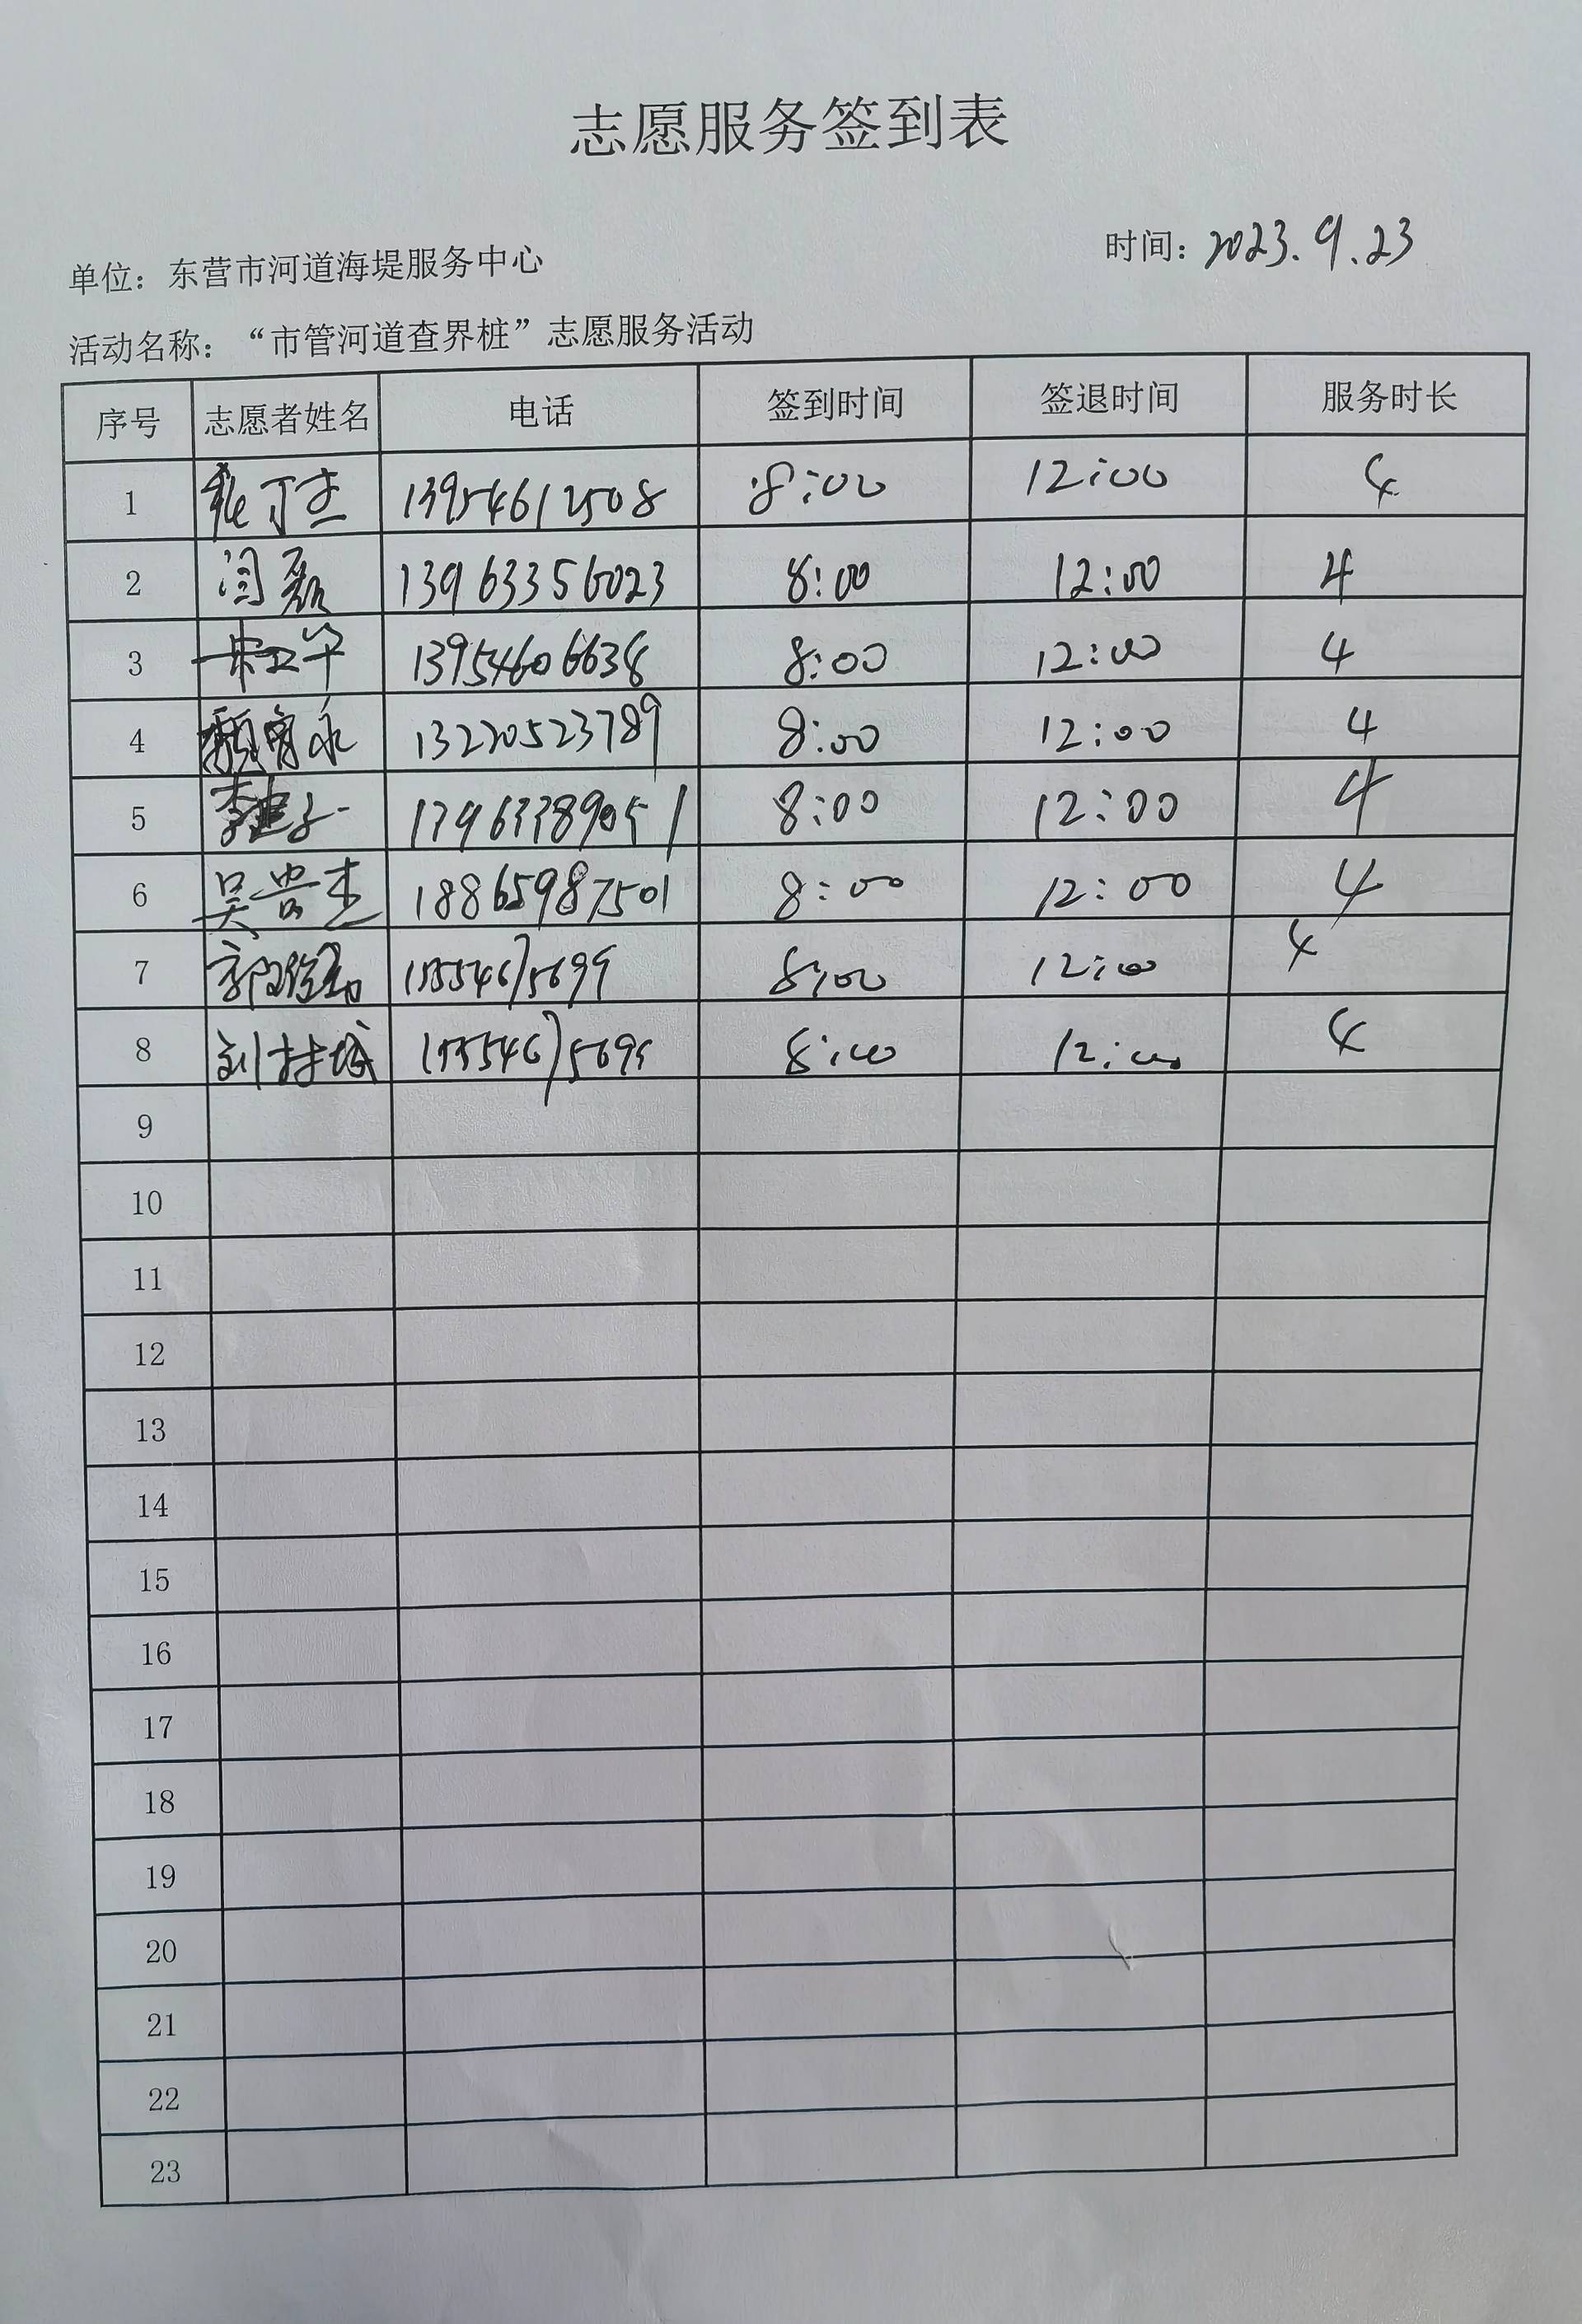 志愿服务签到表
单位：东营市河道海堤服务中心 时间：2023.9.23
活动名称：“市管河道查界桩”志愿服务活动
序号 志愿者姓名 电话 签到时间 签退时间 服务时长
1 13954612508 8:00 12:00 4
2 闫磊 13963356023 8:00 12:00 4
3 13954606638 8:00 12:00 4
4 13220523789 8:00 12:00 4
5 8:00 12:00 4
6 吴岩杰 18865987501 8:00 12:00 4
7 8:00 12:00 4
8 8:00 12:00 4
9
10
11
12
13
14
15
16
17
18
19
20
21
22
23